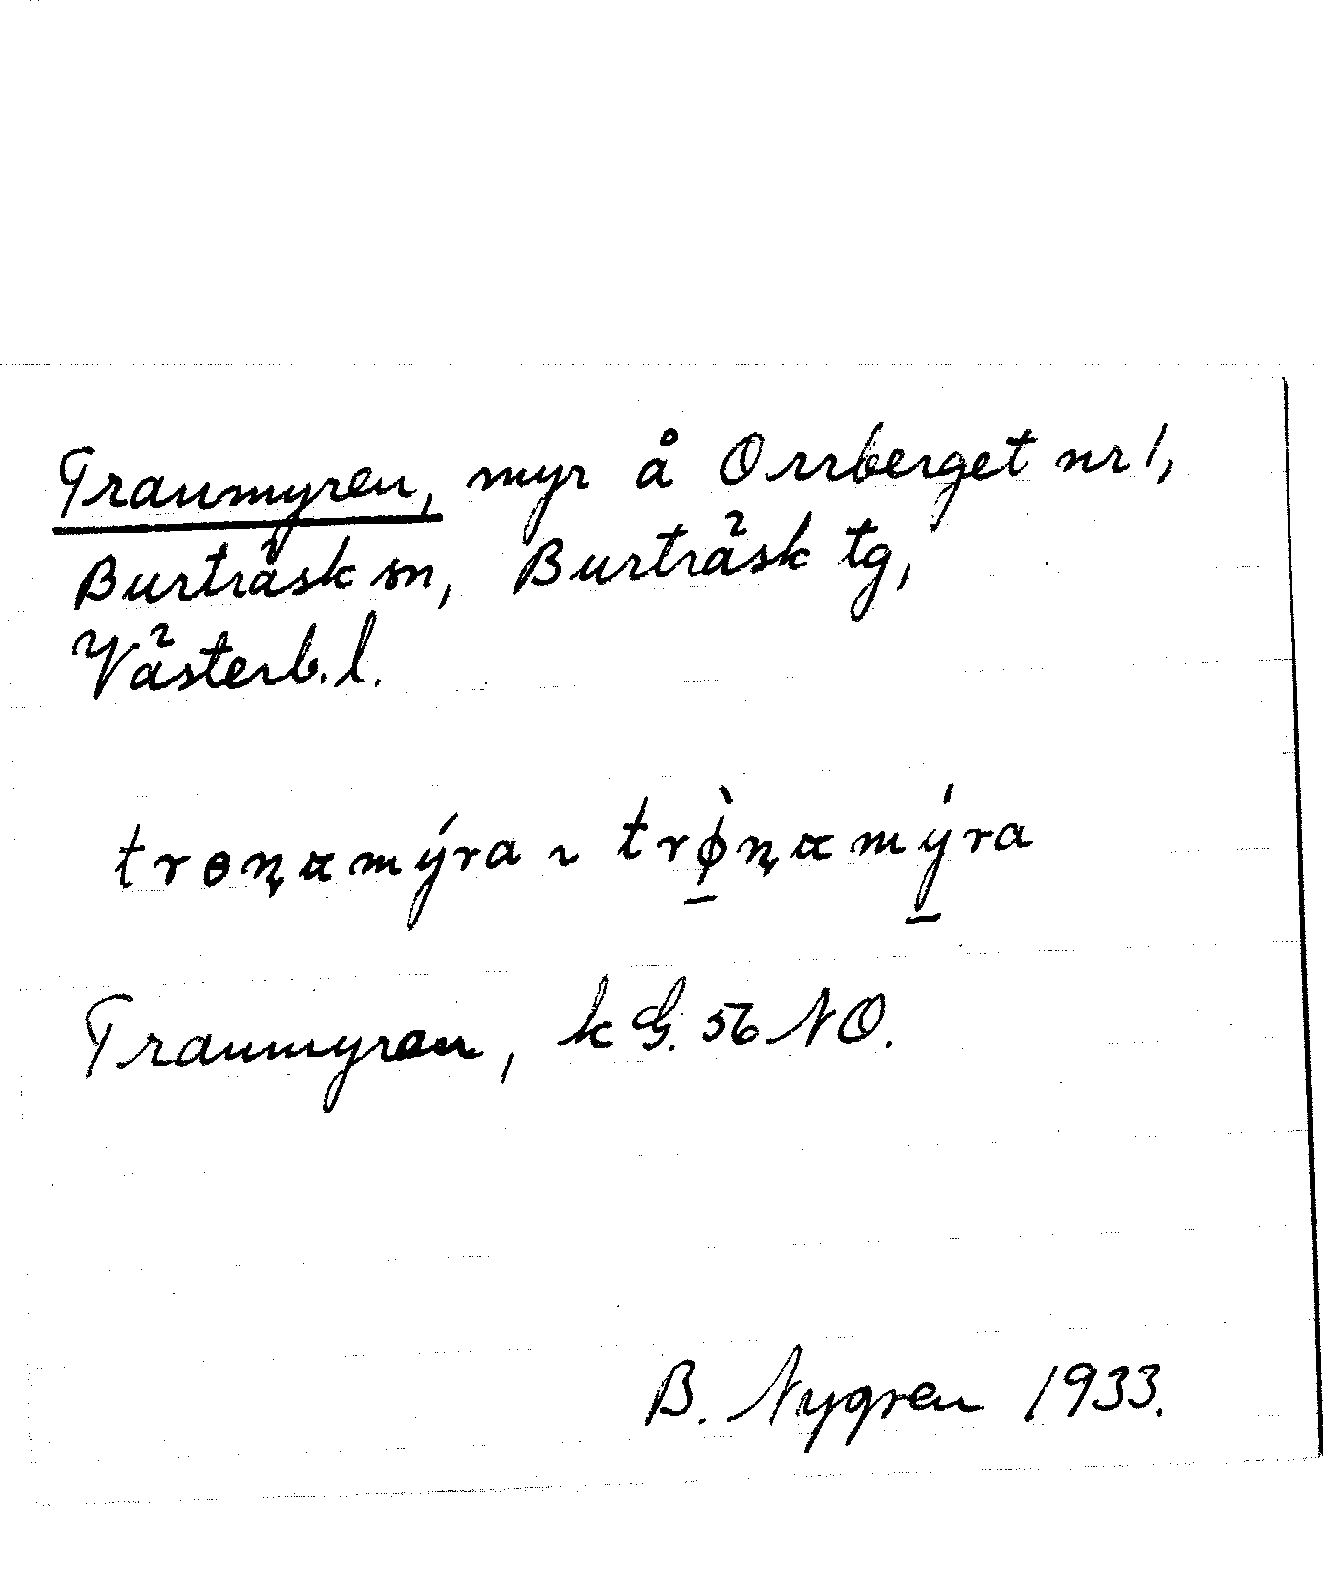 Tranmyren, myr å Orrberget nr 1,
Burträsk sn, Burträsk tg,
Västerb. l.
trɵn̨αmýra ~ trø̱̀n̨αmý̱ra
Tranmyran, k G. 56 NO.
B. Nygren 1933.